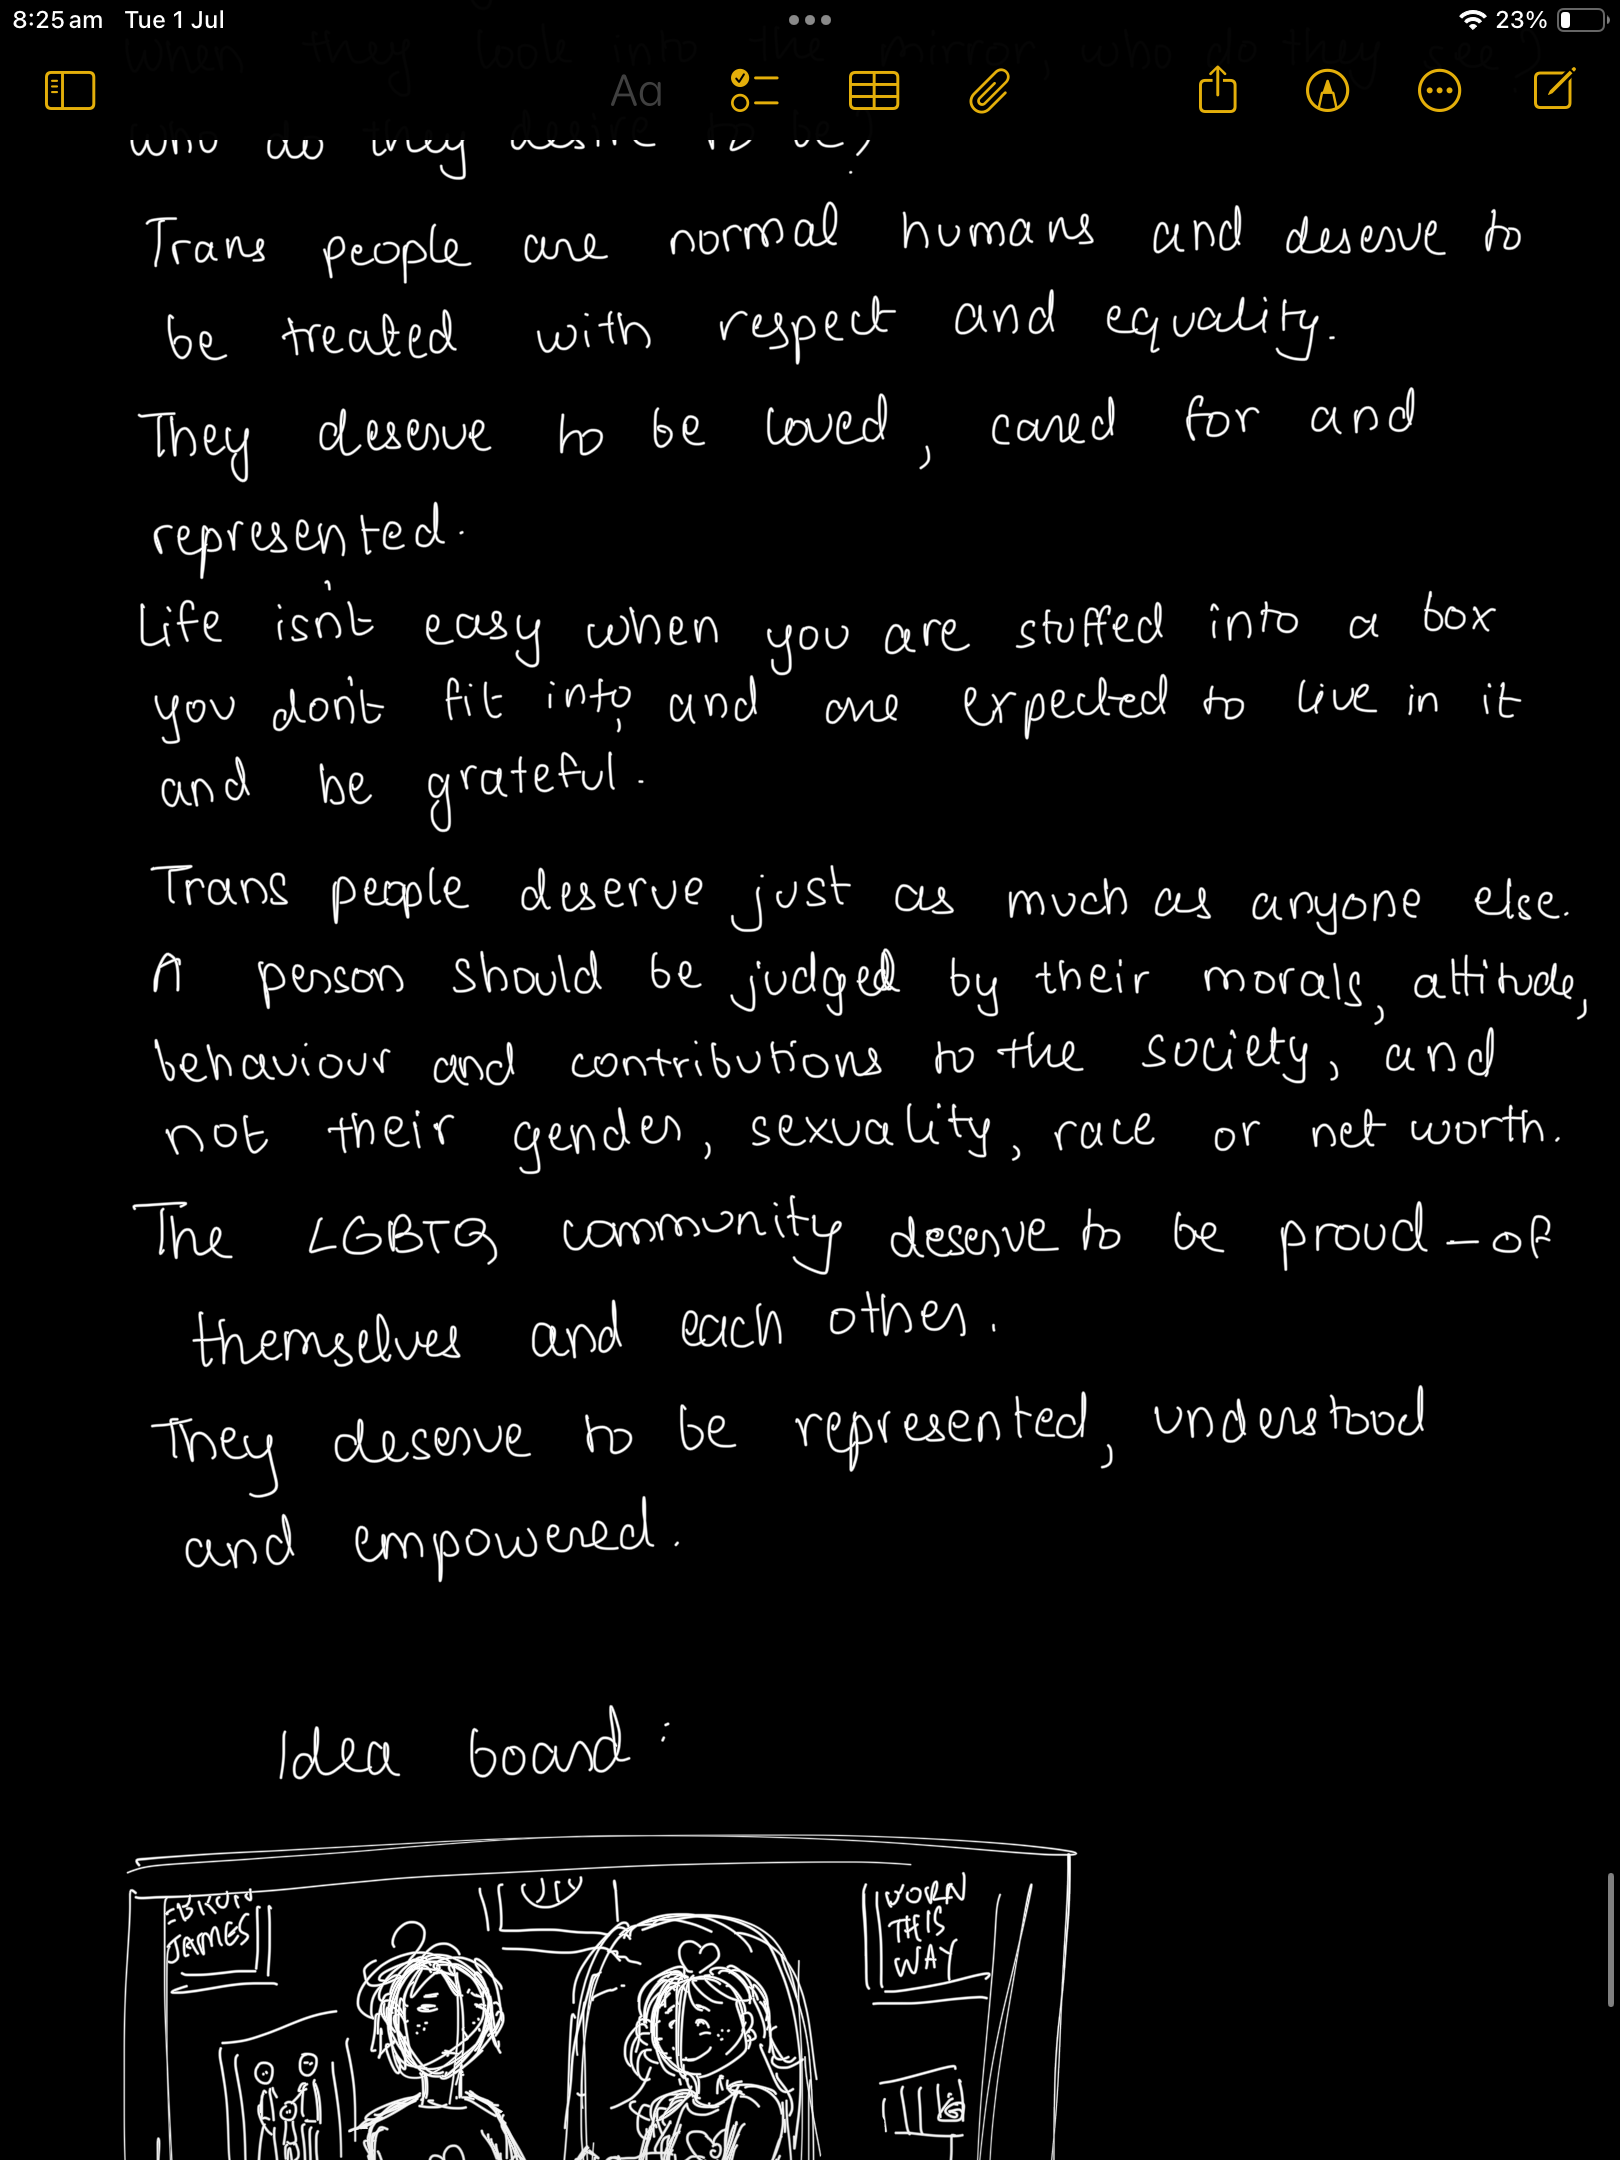 8:25 am Tue 1 Jul
23%
when they look into the mirror, who do they see?
Aa
who do they desire to be?
Trans people are normal humans and deserve to
be treated with respect and equality.
They deserve to be loved, cared for and
represented.
Life isn't easy when you are stuffed into a box
you don't fit into, and are expected to live in it
and be grateful.
Trans people deserve just as much as anyone else.
A person should be judged by their morals, attitude,
behaviour and contributions to the society, and
not their gender, sexuality, race or net worth.
The LGBTQ community deserve to be proud - of
themselves and each other.
They deserve to be represented, understood
and empowered.
Idea board:
EBRON
JAMES
BORN
THIS
WAY